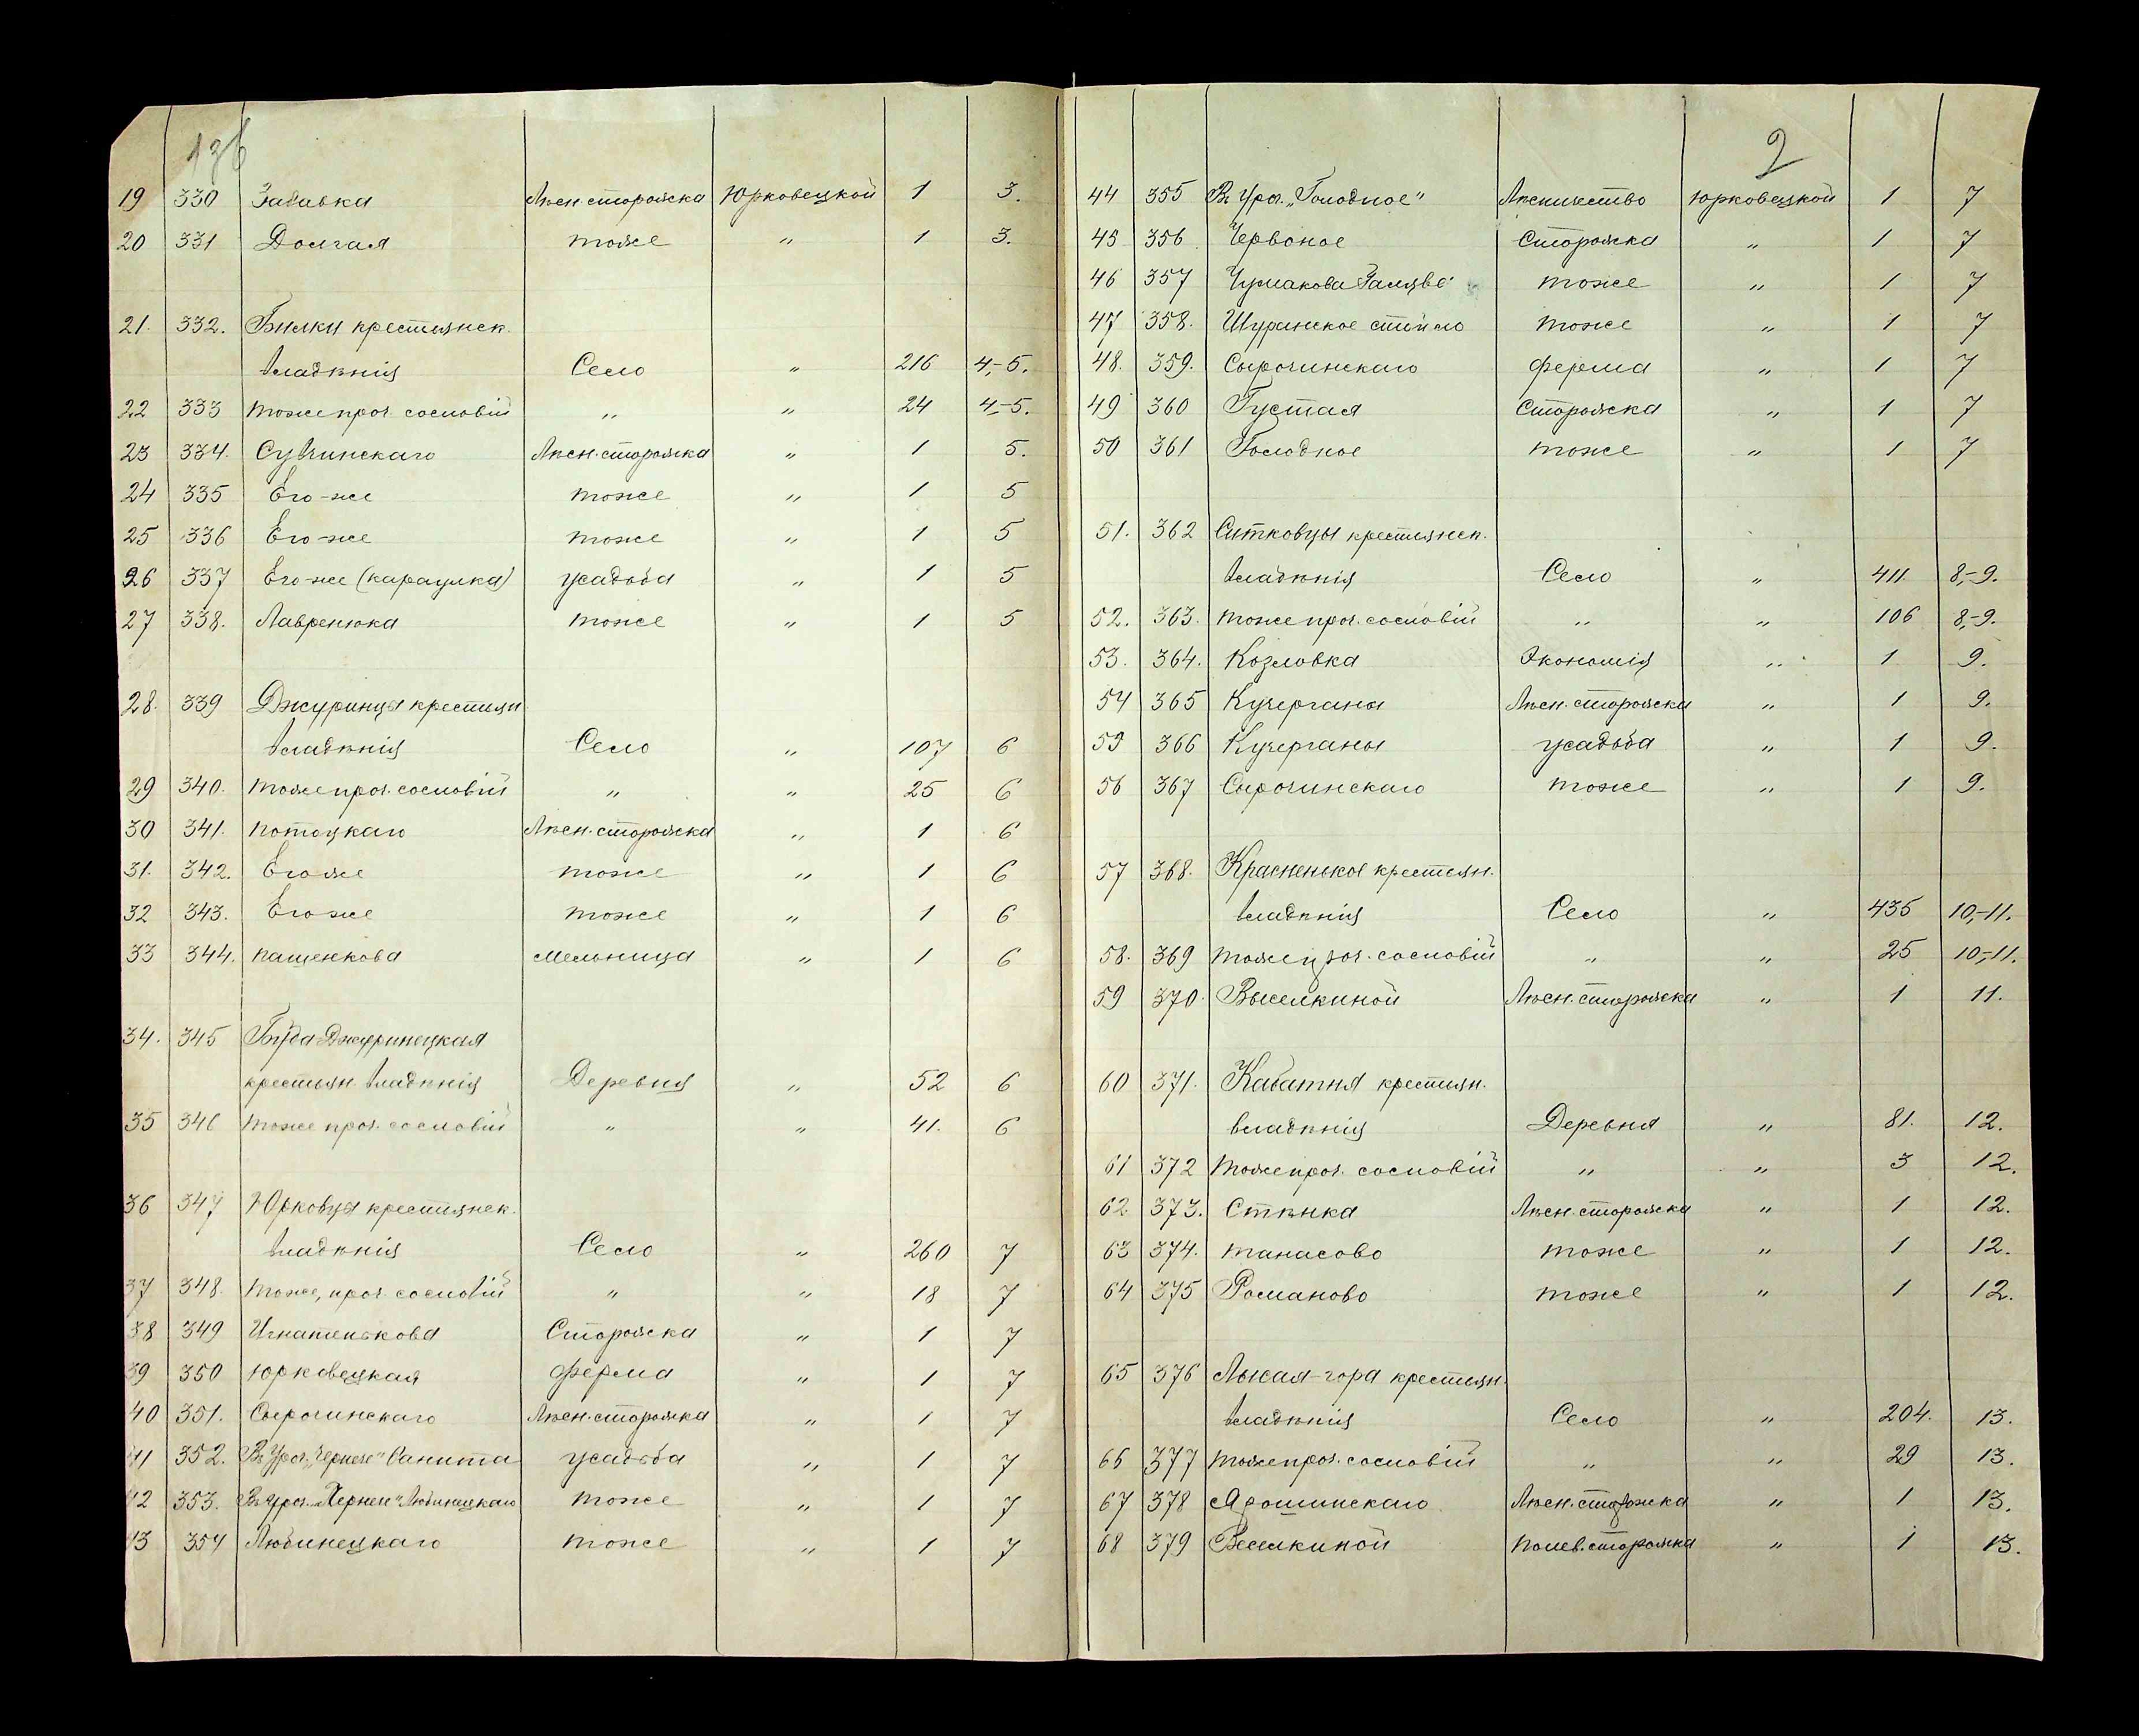 19 330 Забавка Лѣсн. сторожка Юрковецкой 1 3.
20 331 Долгая тоже " 1 3.
21. 332. Билки крестьянск.
владѣнія Село " 216 4,-5.
22 333 тоже проч. сословій " " 24 4,-5.
23 334. Сувчинскаго Лѣсн. сторожка " 1 5.
24 335 Его-же тоже " 1 5
25 336 Его-же тоже " 1 5
26 337 Его-же (караулка) усадьба " 1 5
27 338. Лавренюка тоже " 1 5
28. 339 Джуринцы крестьян
владѣнія Село " 107 6
29 340. тоже проч. сословій " " 25 6
30 341. Потоцкаго Лѣсн. сторожка " 1 6
31. 342. Его же тоже " 1 6
32 343. Его же тоже " 1 6
33 344. Пащенкова мельница " 1 6
34. 345 Буда Джуринецкая
крестьян владѣнія Деревня " 52 6
35 346 тоже проч. сословій " " 41. 6
36 347 Юрковцы крестьянск.
владѣнія Село " 260 7
37 348. тоже, проч сословій " " 18 7
38 349 Игнатенькова Сторожка " 1 7
39 350 Юрковецкая ферма " 1 7
40 351. Сырочинскаго Лѣсн. сторожка " 1 7
41 352. Въ Уроч. усадьба " 1 7
42 353. Въ Уроч. Любинецкаго тоже " 1 7
43 354 Любинецкаго тоже " 1 7
2
44 355 Въ Уроч. „Голодное" Лѣсничество Юрковецкой 1 7
45 356 Червоное Сторожка " 1 7
46 357 Чумакова тоже " 1 7
47 358. тоже " 1 7
48. 359. Сырочинскаго ферма " 1 7
49 360 Густая Сторожка " 1 7
50 361 Голодное тоже " 1 7
51. 362 Ситковцы крестьянск.
владѣнія Село " 411 8,-9.
52. 363. тоже проч. сословій " " 106 8,-9.
53. 364. Козловка Экономія " 1 9.
54 365 Кучерганы Лѣсн. сторожка " 1 9.
55 366 Кучерганы усадьба " 1 9.
56 367 Сырочинскаго тоже " 1 9.
57 368. Красненькое крестьян.
владѣнія Село " 435 10,-11.
58. 369 тоже проч. сословій " " 25 10,-11.
59 370. Выселкиной Лѣсн. сторожка " 1 11.
60 371. Кабатня крестьян.
владѣнія Деревня " 81. 12.
61 372 тоже проч. сословій " " 3 12.
62 373. Стѣнка Лѣсн. сторожка " 1 12.
63 374. Танасово тоже " 1 12.
64 375 Романово тоже " 1 12.
65 376 Лысая-гора крестьян.
владѣнія Село " 204. 13.
66 377 тоже проч. сословій " " 29 13.
67 378 Ярошинскаго Лѣсн. сторожка " 1 13.
68 379 Веселкиной Полев. сторожка " 1 13.